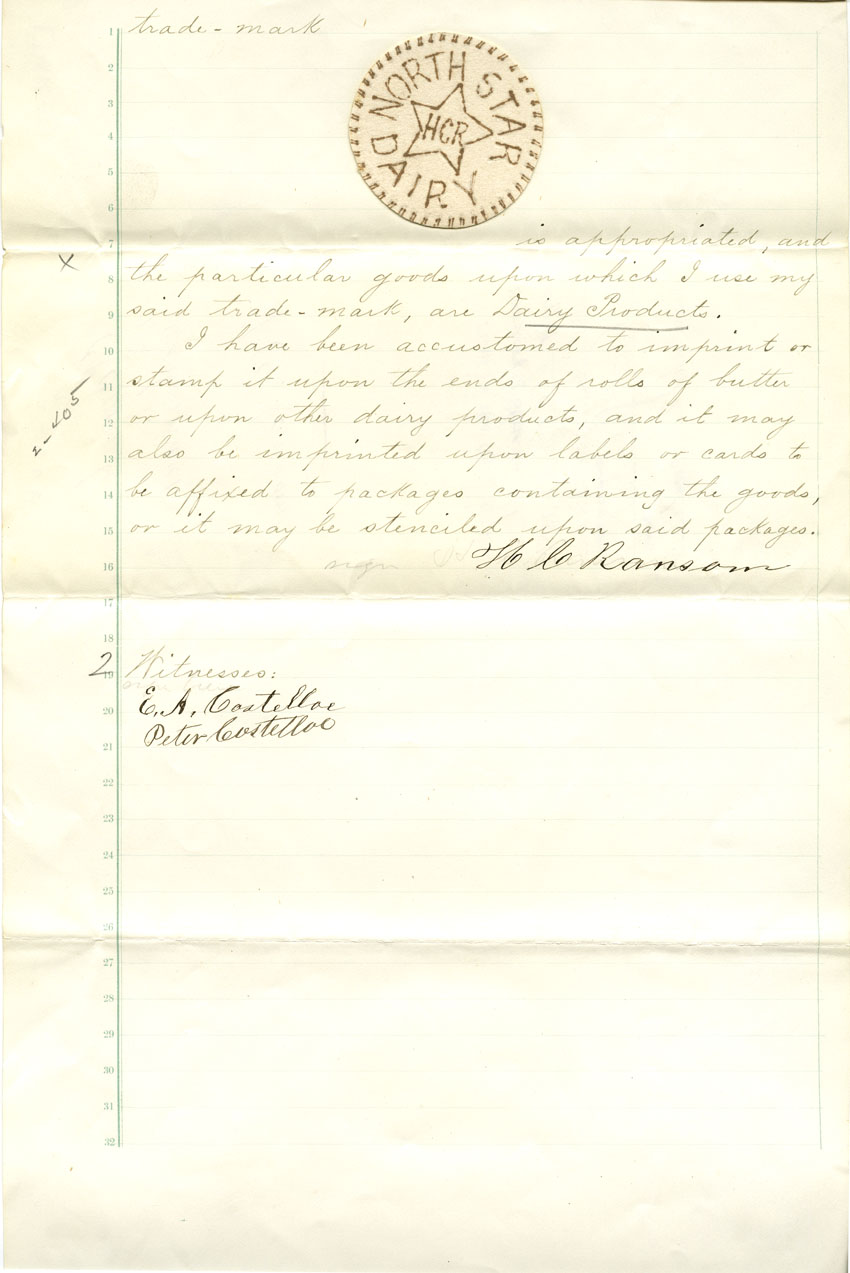 trade-mark
NORTH STAR
HCR
DAIRY
is appropriated, and
the particular goods upon which I use my
said trade-mark, are Dairy Products.
I have been accustomed to imprint or
stamp it upon the ends of rolls of butter
or upon other dairy products, and it may
also be imprinted upon labels or cards to
be affixed to packages containing the goods,
or it may be stenciled upon said packages.
H C Ransom
2 Witnesses:
E. A. Costelloe
Peter Costelloe
x
2-405
1
2
3
4
5
6
7
8
9
10
11
12
13
14
15
16
17
18
19
20
21
22
23
24
25
26
27
28
29
30
31
32